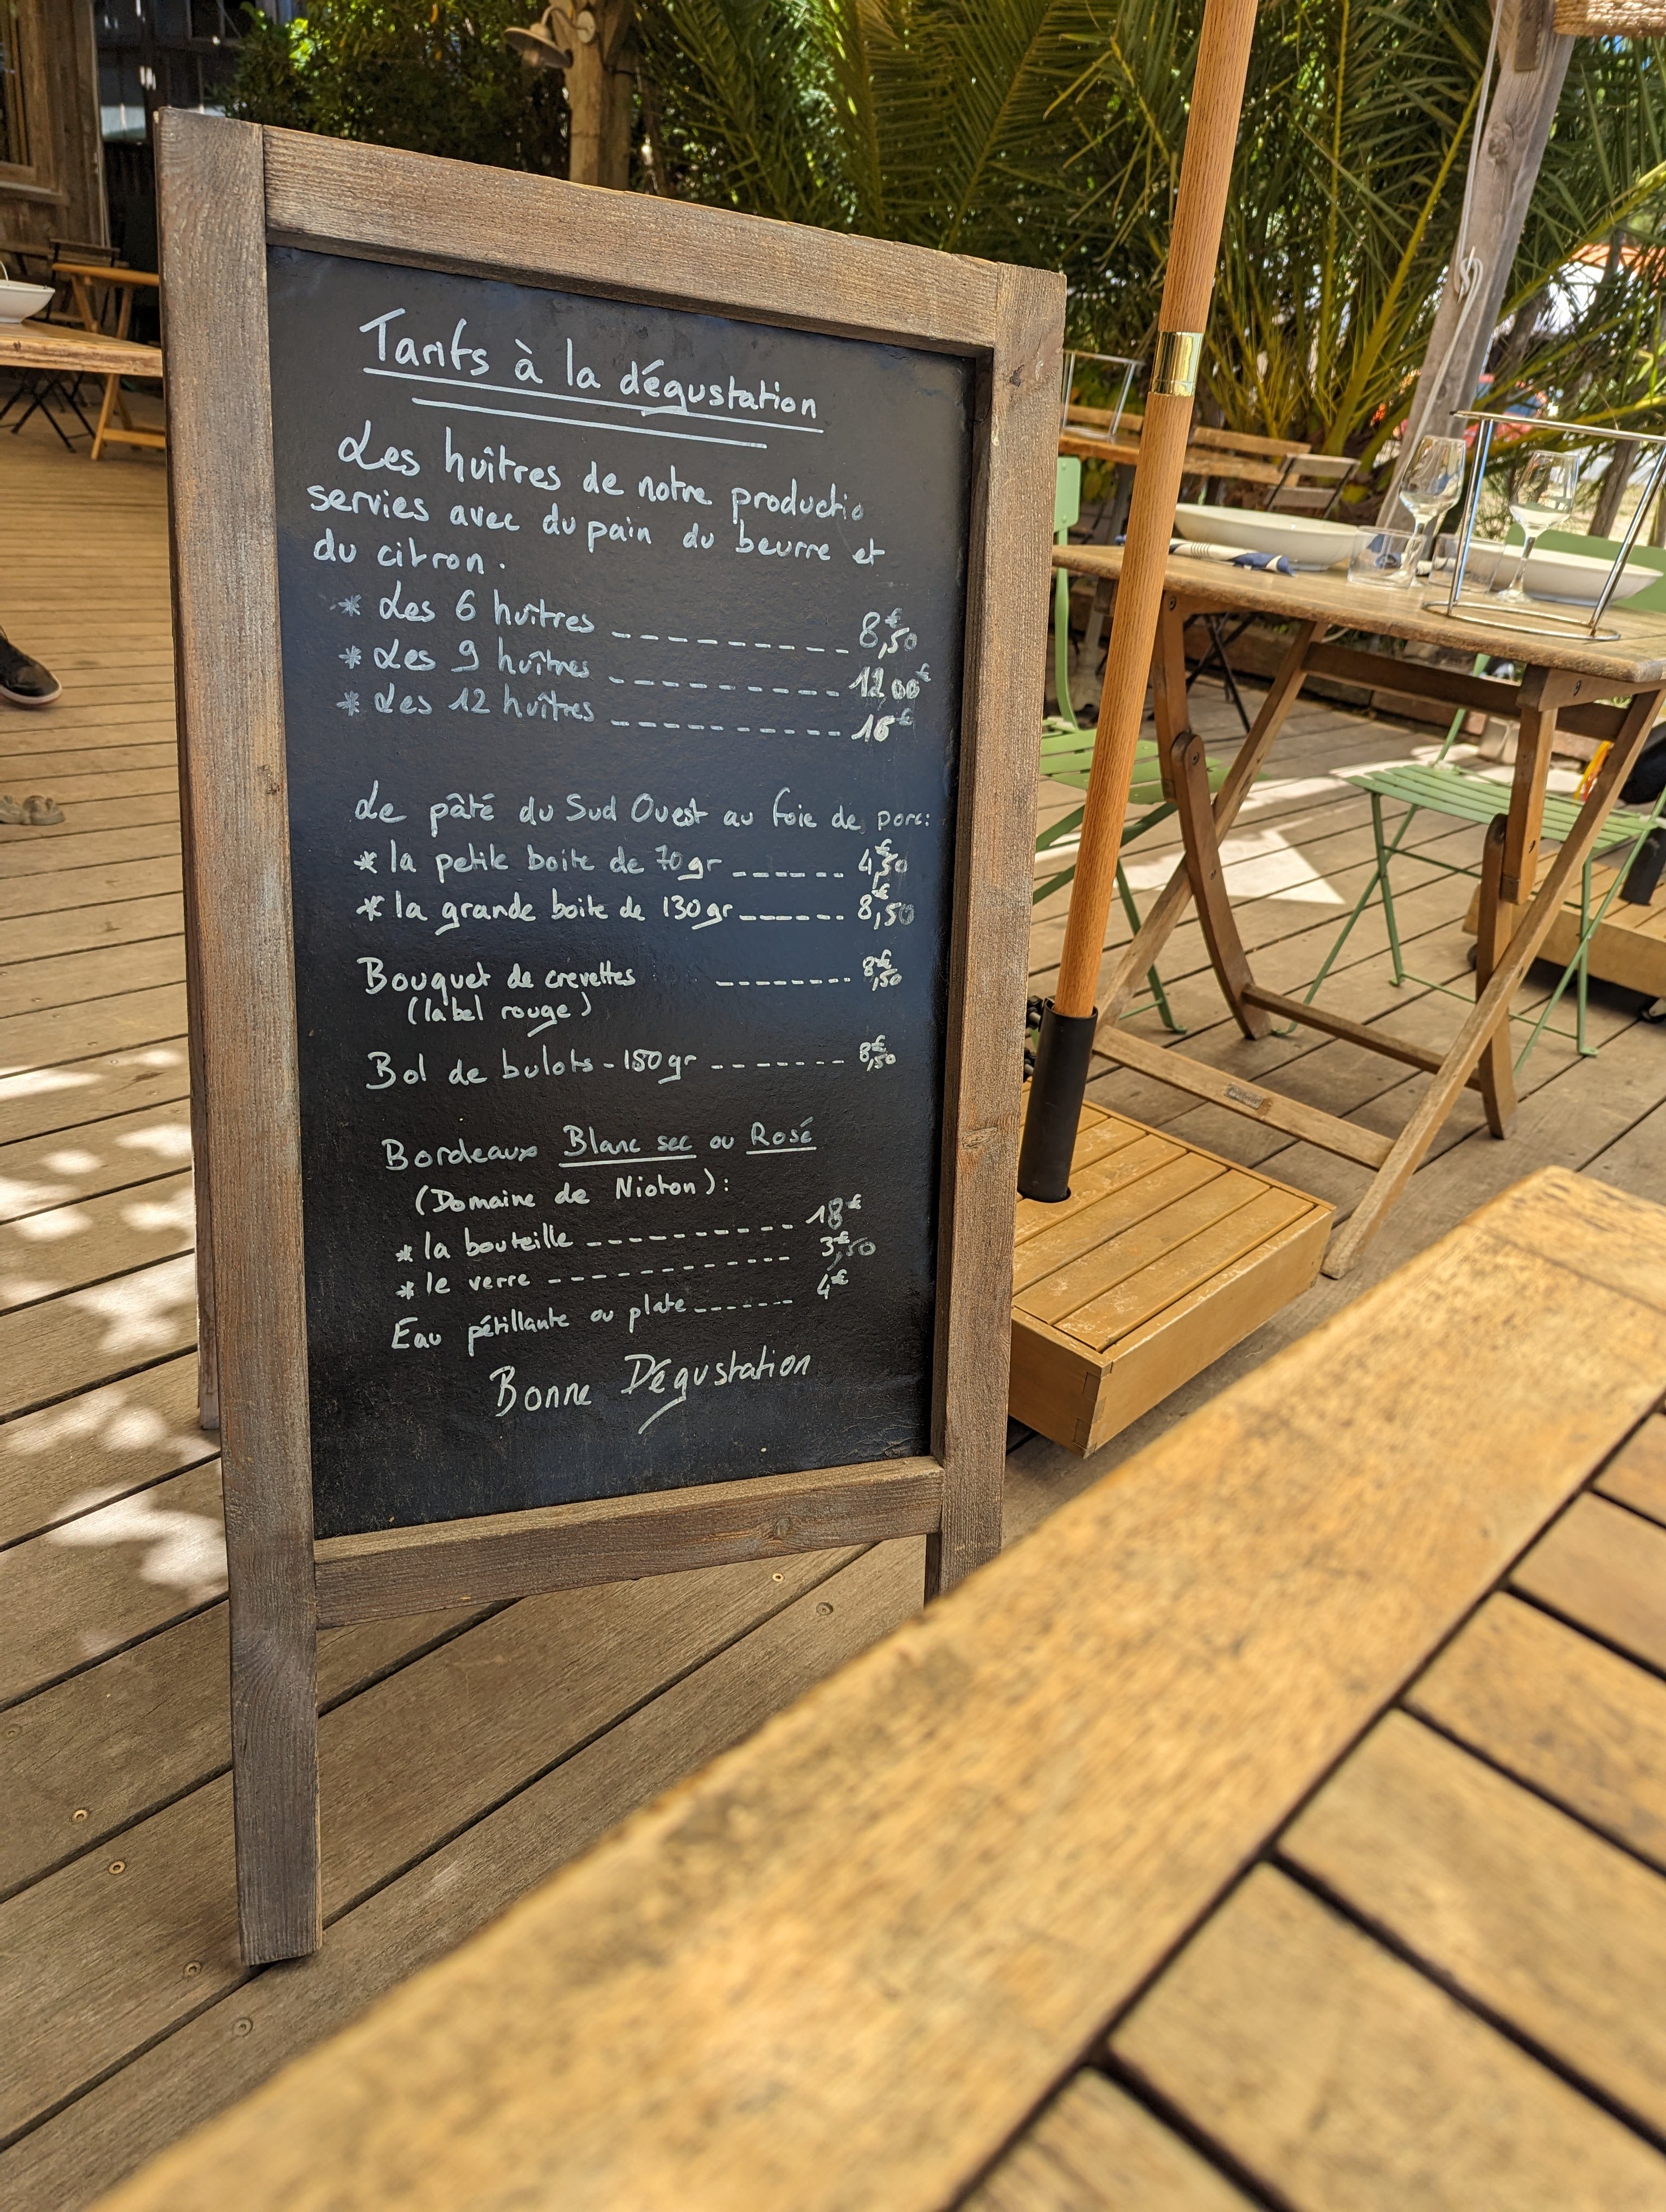 Tarifs à la dégustation
Les huîtres de notre productio
servies avec du pain du beurre et
du citron.
* Les 6 huîtres _ _ _ _ _ _ _ _ _ 8,50€
* Les 9 huîtres _ _ _ _ _ _ _ _ _ _ 12,00€
* Les 12 huîtres _ _ _ _ _ _ _ _ _ _ 16€
Le pâté du Sud Ouest au foie de porc:
* la petite boite de 70gr _ _ _ _ _ _ 4,50€
* la grande boite de 130gr _ _ _ _ _ _ 8,50€
Bouquet de crevettes _ _ _ _ _ _ _ _ 8,50€
(label rouge)
Bol de bulots - 150gr _ _ _ _ _ _ _ _ 8,50€
Bordeaux Blanc sec ou Rosé
(Domaine de Nioton):
* la bouteille _ _ _ _ _ _ _ _ _ _ _ 18€
* le verre _ _ _ _ _ _ _ _ _ _ _ _ 3,50€
Eau pétillante ou plate _ _ _ _ _ _ 4€
Bonne Dégustation